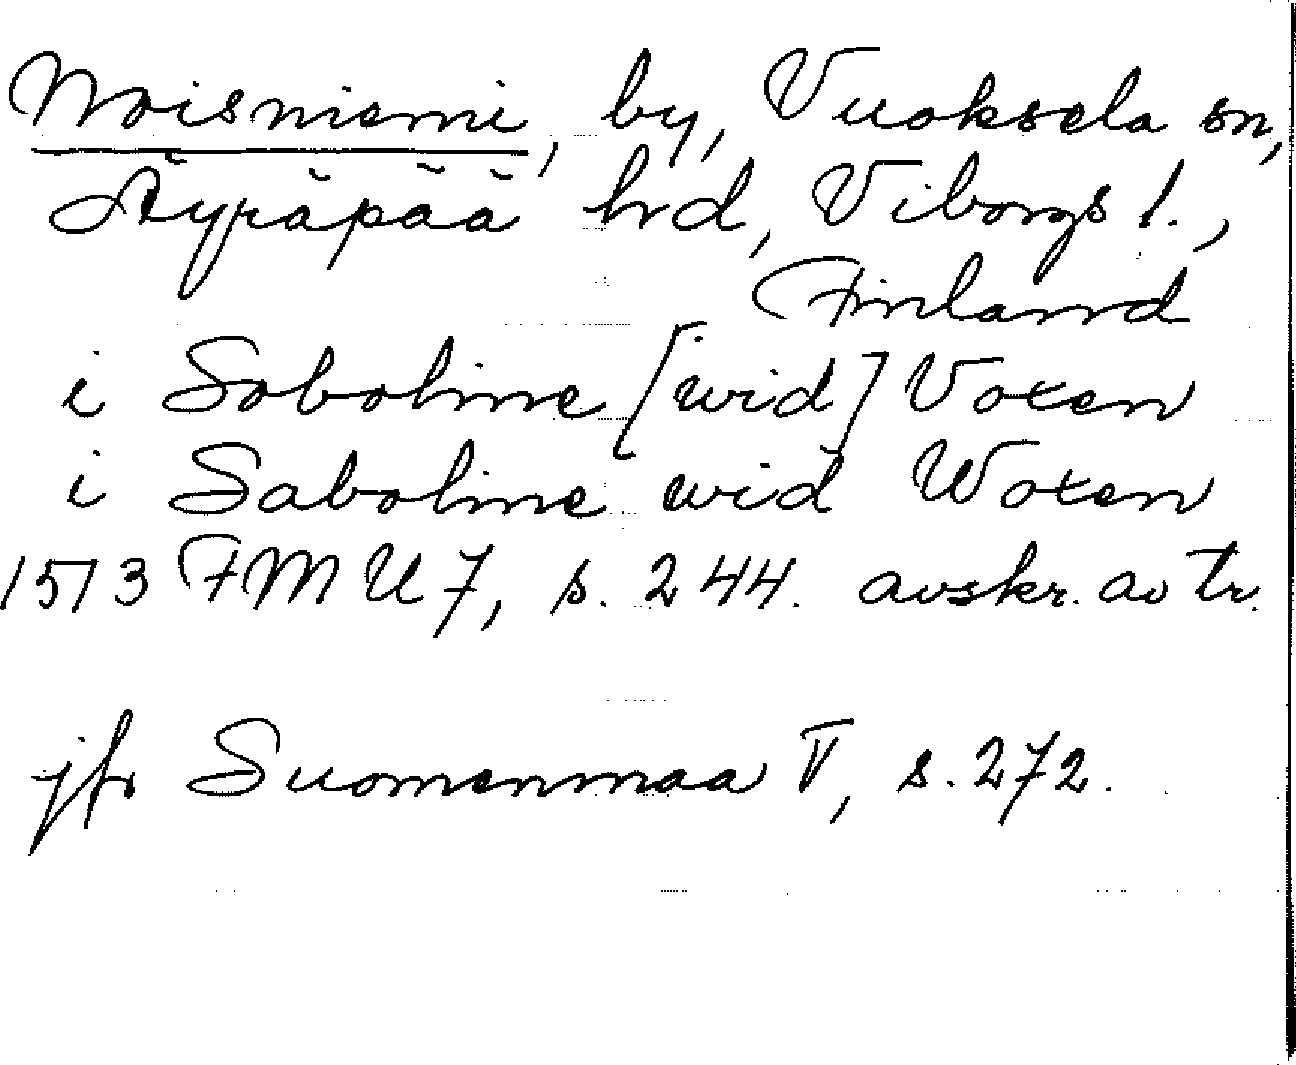 Noisniemi, by, Vuoksela sn,
Äyräpää hrd, Viborgs l.,
Finland
i Soboline [wid] Voxen
i Saboline wid Woxen
1513 FMU 7, s. 244. avskr. av tr.
jfr Suomenmaa V, s. 272.